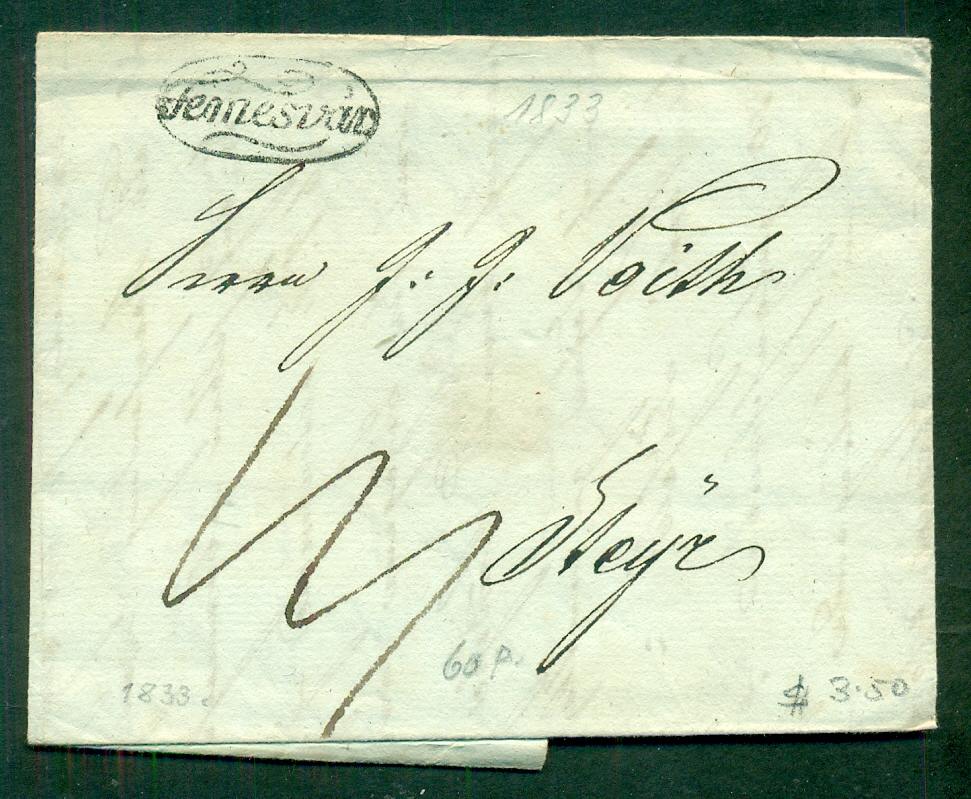 Temesvár
1833
Herrn J. J. Voith
Steÿr
60 P.
1833.
$ 3.50